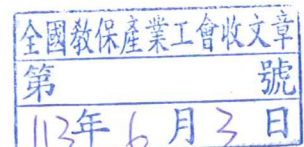 全國教保產業工會收文章
第 號
113年6月3日